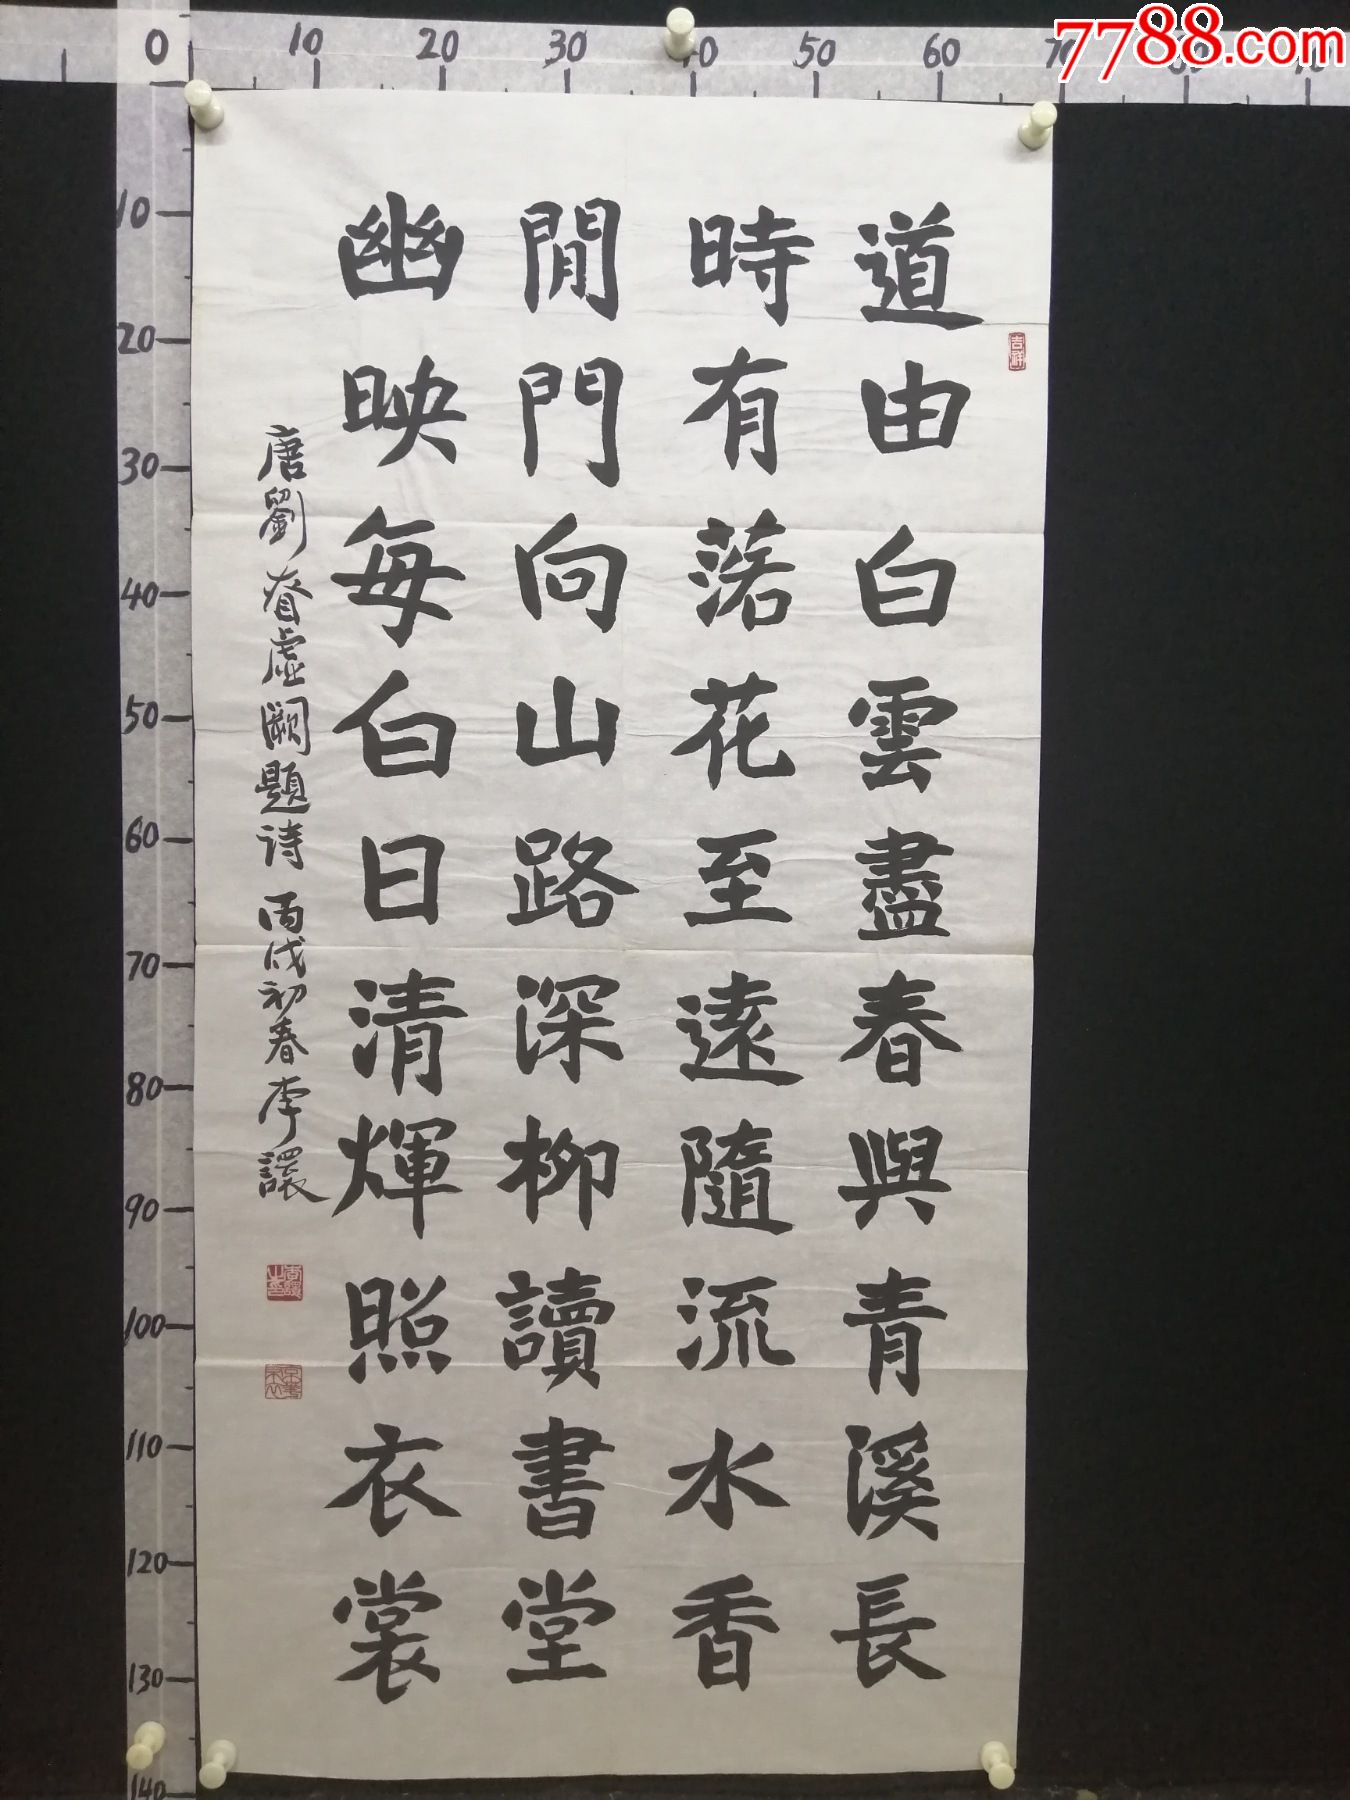 7788.com
0 10 20 30 40 50 60 70
10
20
30
40
50
60
70
80
90
100
110
120
130
140
道由白雲盡春與青溪長
時有落花至遠隨流水香
閒門向山路深柳讀書堂
幽映每白日清輝照衣裳
唐劉眘虛闕題诗丙戌初春李譞
吉祥